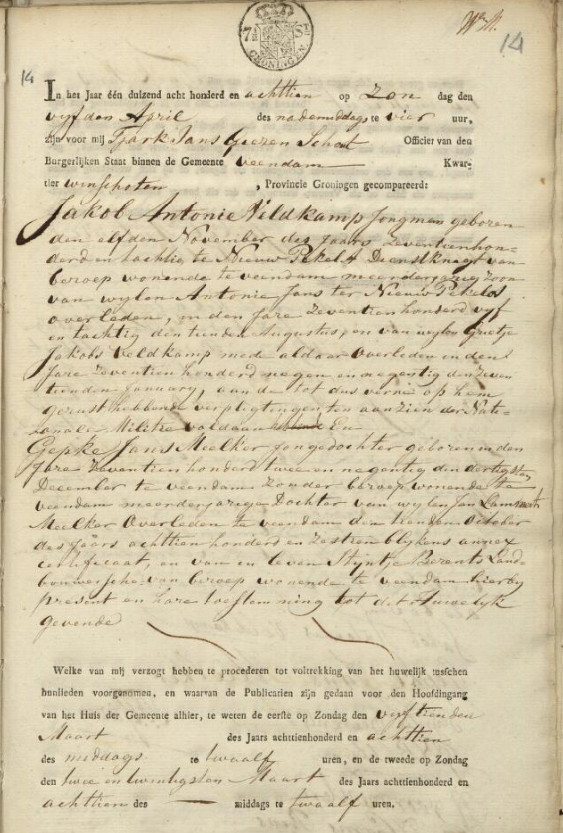 14
14
GRONINGEN
In het Jaar één duizend acht honderd en achttien op zon dag den
vyfden April des nademiddags te vier uur,
zijn voor mij Tjark Jans Officier van den
Burgerlijken Staat binnen de Gemeente Veendam Kwar-
tier Winschoten , Provincie Groningen gecompareerd:
Jakob Antonie Veldkamp Jongman geboren
den elfden November des Jaars zeventienhon-
derd en tachtig te Nieuw Pekel A Dienstknegt van
beroep wonende te veendam meerderjarige zoon
van wylen Antonie Jans ter Nieuw Pekel A
overleden, in den Jare zeventienhonderd vyf
en tachtig den tienden Augustus, en van wylen Grietje
Jakobs Veldkamp mede aldaar overleden in den
Jare zeventien honderd negen en negentig den zeven
tienden January, aan de tot dus verre op hem
gerust hebbende verpligtingen ten aanzien der Nati-
onale Militie voldaan En
Gepke Jans Meelker Jongedochter geboren in den
Jare zeventien honderd twee en negentig den dertigsten
December te veendam zonder beroep wonende te
veendam meerderjarige Dochter van wylen Jan
Meelker Overleden te veendam den tienden October
des Jaars achttienhonderd en zestien blykens annex
certificaat, en van in leven Styntje Berents Land-
bouwersche van beroep wonende te veendam hierby
present en hare toestemming tot dit Huwelyk
gevende
Welke van mij verzogt hebben te procederen tot voltrekking van het huwelijk tusschen
hunlieden voorgenomen, en waarvan de Publicatien zijn gedaan voor den Hoofdingang
van het Huis der Gemeente alhier, te weten de eerste op Zondag den vyftienden
Maart des Jaars achttienhonderd en achttien
des middags te twaalf uren, en de tweede op Zondag
den twee en twintigsten Maart des Jaars achttienhonderd en
achttien des middags te twaalf uren.